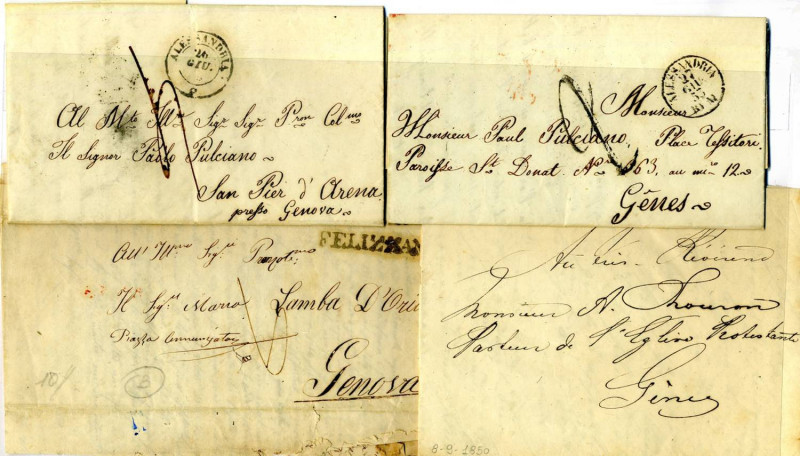 ALESSANDRIA
26
GIU.
Al M.to Ill.re Sig.r Sig.r P.ron Col.mo
Il Signor Paolo Pulciano
San Pier d'Arena
presso Genova
ALESSANDRIA
27
GIU
Monsieur
Monsieur Paul Pulciano, Place Tessitori
Paroisse St Donat. No 363, au 12
Gênes
FELIZZAN
All' Ill.mo Sig.r
Il Sig.r Marco Lamba D'Oria
Piazza Annunziata
Genova
10/
B
Au très-Révérend
Monsieur A. Thouron
Pasteur de l'Eglise Protestante
Gênes
8-9-1850